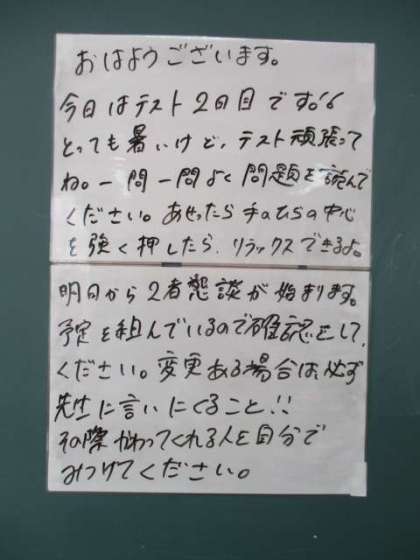 おはようございます。
今日はテスト2日目です。66
とっても暑いけど、テスト頑張って
ね。一問一問よく問題を読んで
ください。あせったら手のひらの中心
を強く押したら、リラックスできるよ。
明日から2者懇談が始まります。
予定を組んでいるので確認をして、
ください。変更ある場合は、必ず
先生に言いにくること!!
その際かわってくれる人を自分で
みつけてください。